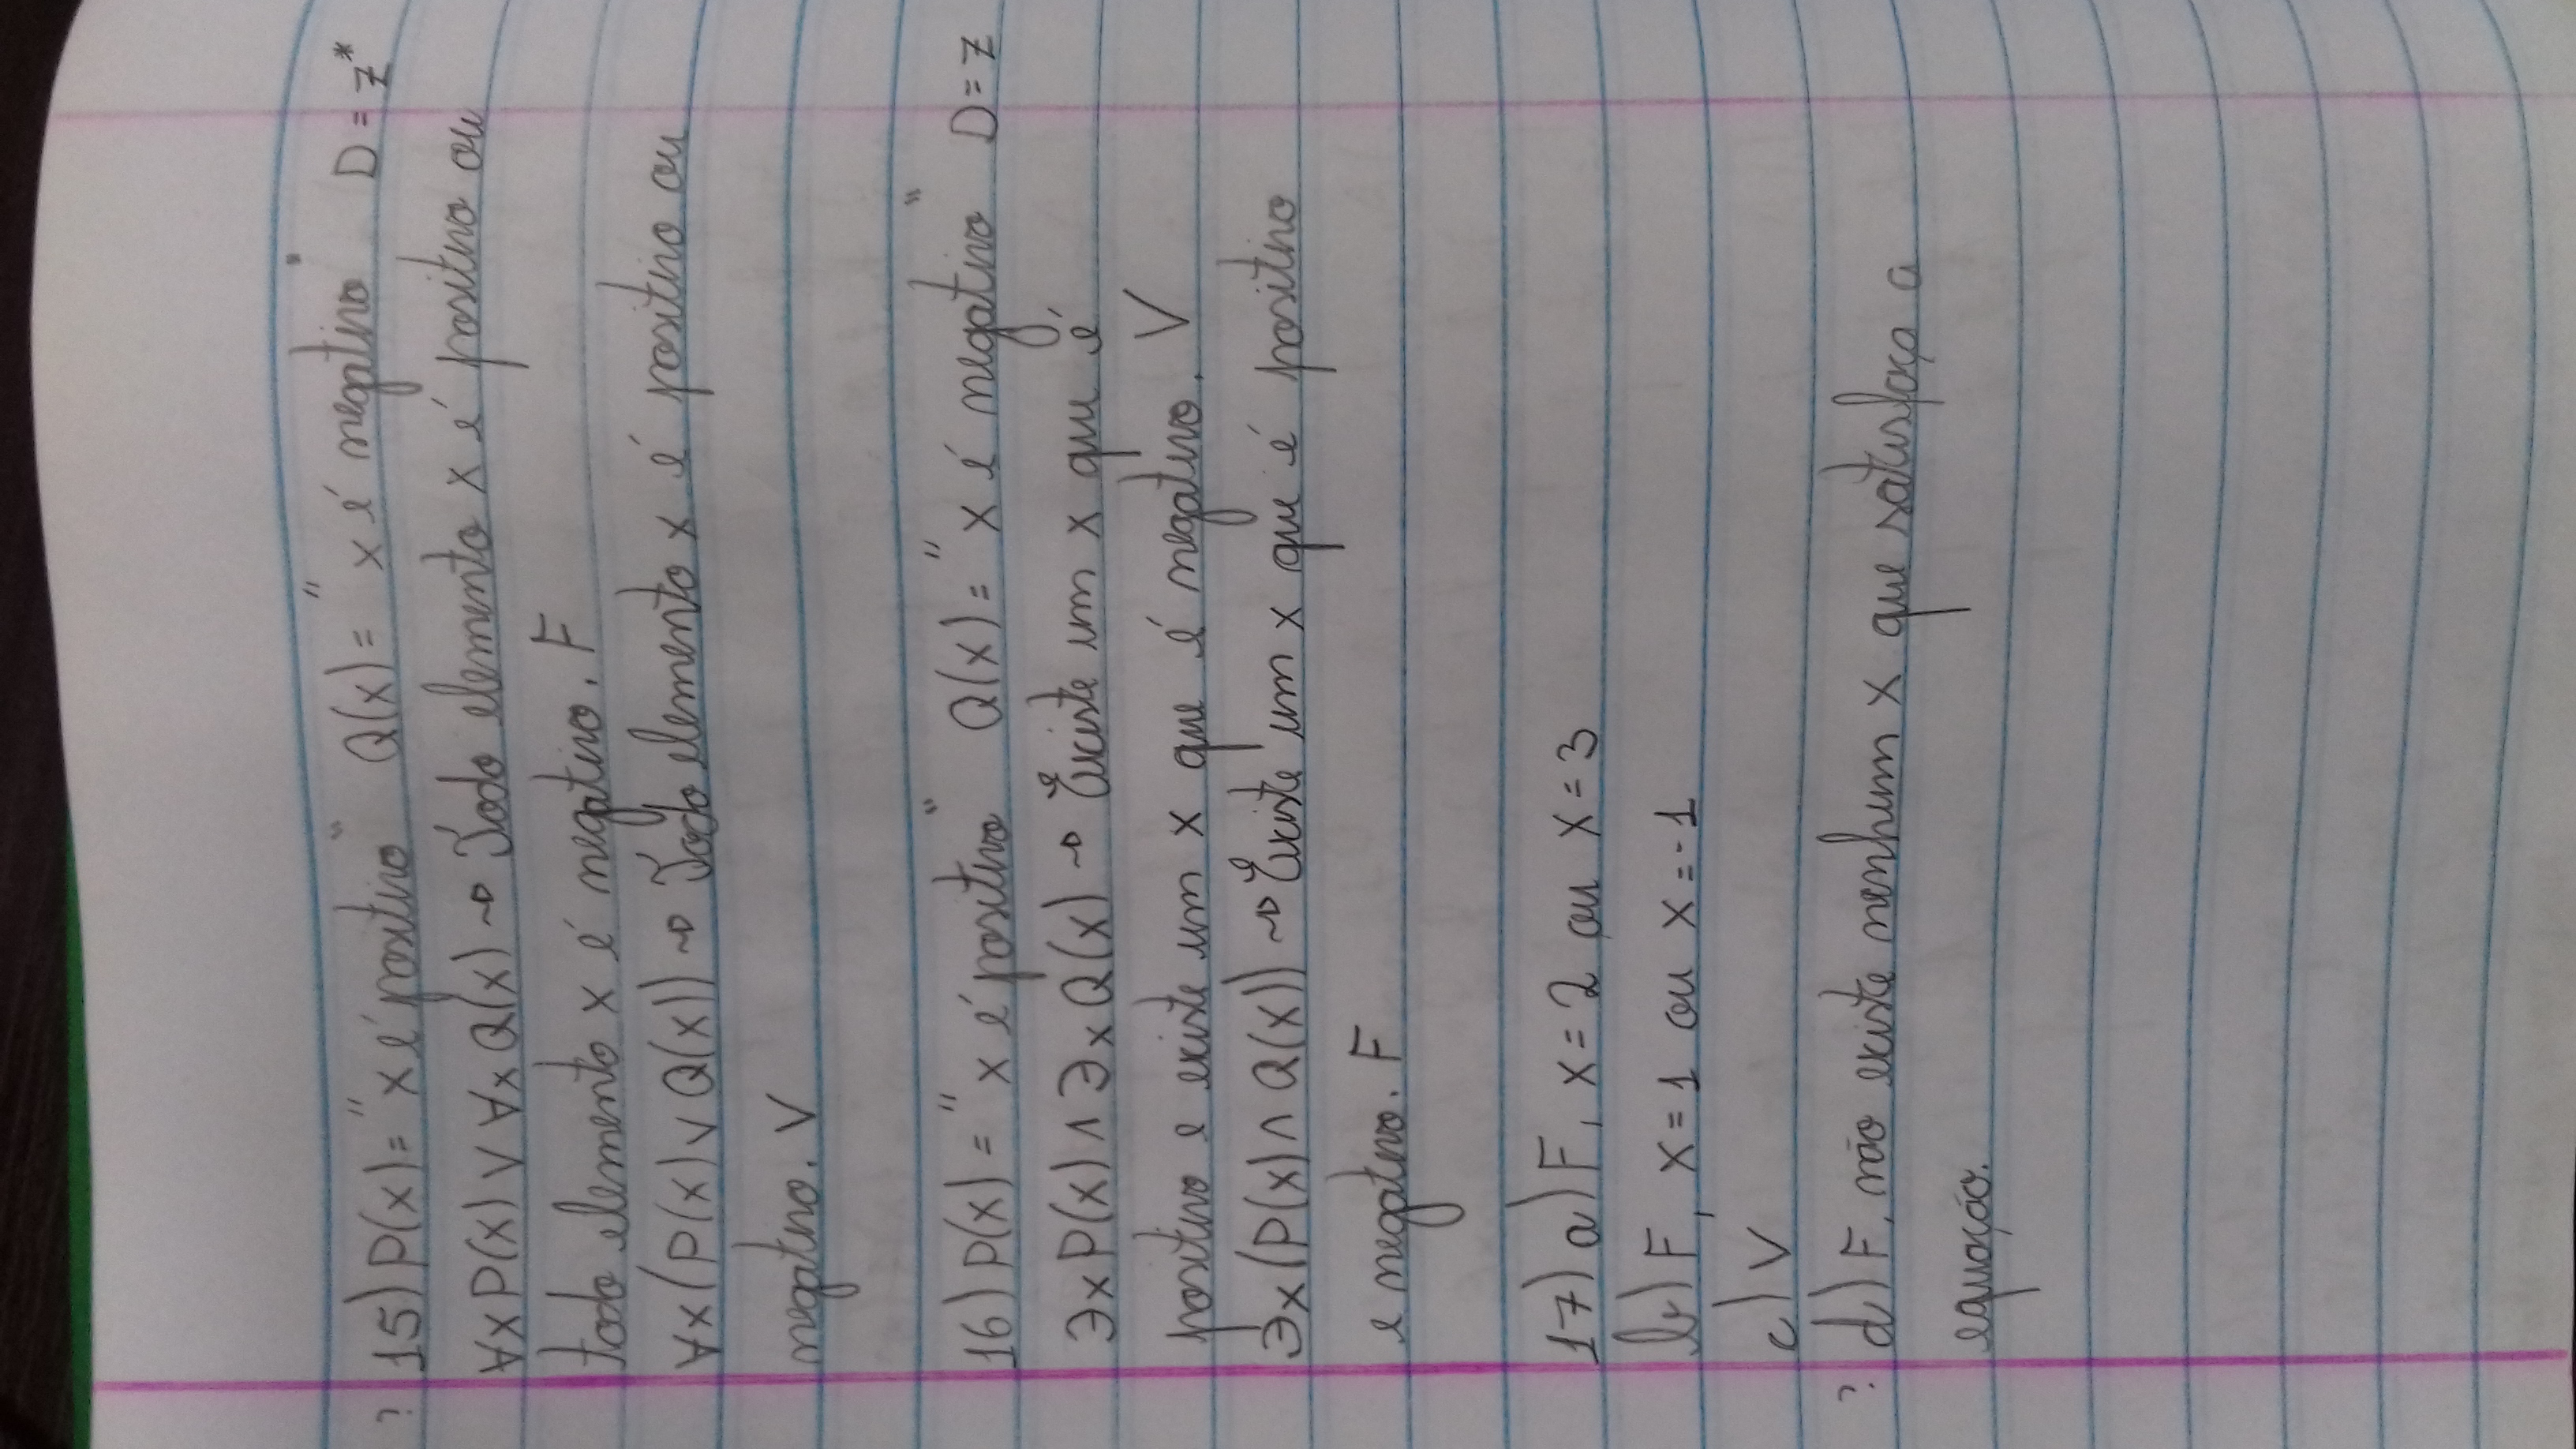 ? 15) P(x) = "x é positivo" Q(x) = "x é negativo" D = Z*
∀x P(x) ∨ ∀x Q(x) → Todo elemento x é positivo ou
todo elemento x é negativo. F
∀x (P(x) ∨ Q(x)) → Todo elemento x é positivo ou
negativo. V
16) P(x) = "x é positivo" Q(x) = "x é negativo" D = Z
∃x P(x) ∧ ∃x Q(x) → Existe um x que é
positivo e existe um x que é negativo. V
∃x (P(x) ∧ Q(x)) → Existe um x que é positivo
e negativo. F
17) a) F, x = 2 ou x = 3
b) F, x = 1 ou x = -1
c) V
? d) F, não existe nenhum x que satisfaça a
equação.